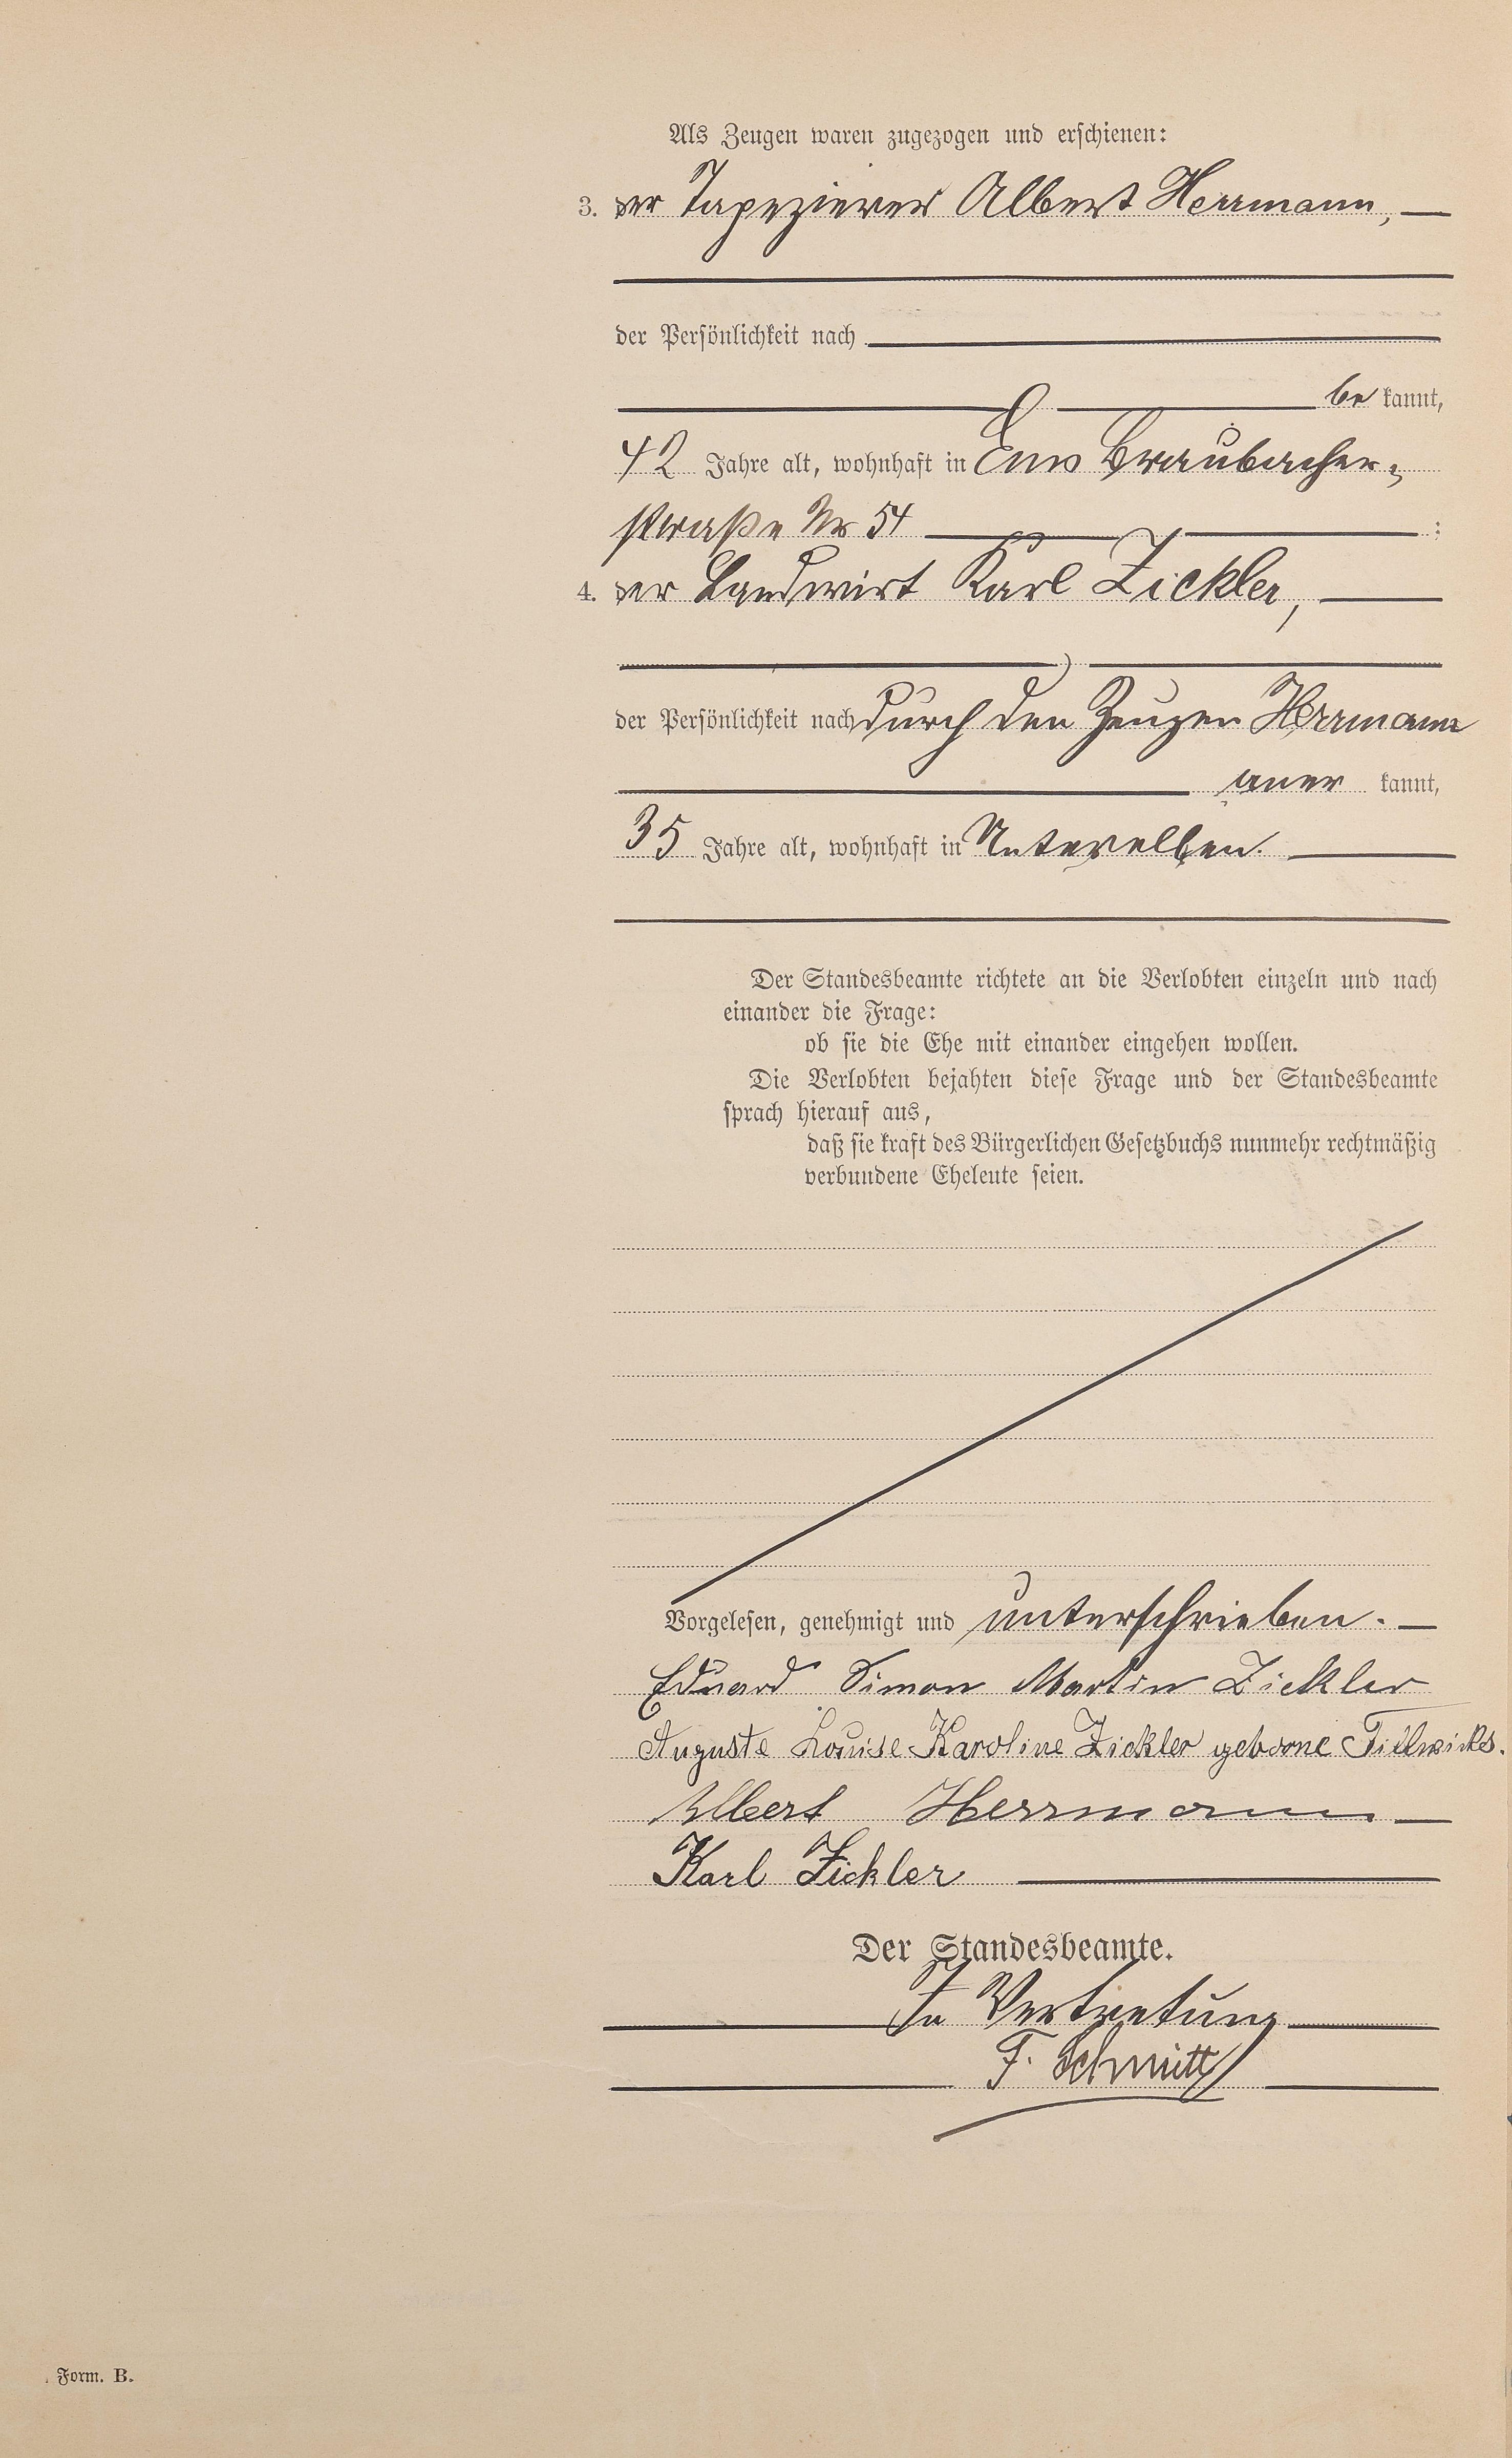 Als Zeugen waren zugezogen und erschienen:
3. der Tapezierer Albert Herrmann,
der Persönlichkeit nach
be kannt,
42 Jahre alt, wohnhaft in Ems Braubacher-
straße Nr 54 ;
4. der Landwirt Karl Zickler,
der Persönlichkeit nach durch den Zeugen Herrmann
aner kannt,
35 Jahre alt, wohnhaft in Unterellen.
Der Standesbeamte richtete an die Verlobten einzeln und nach
einander die Frage:
ob sie die Ehe mit einander eingehen wollen.
Die Verlobten bejahten diese Frage und der Standesbeamte
sprach hierauf aus,
daß sie kraft des Bürgerlichen Gesetzbuchs nunmehr rechtmäßig
verbundene Eheleute seien.
Vorgelesen, genehmigt und unterschrieben.
Eduard Simon Martin Zickler
Auguste Louise Karoline Zickler geborne
Albert Herrmann
Karl Zickler
Der Standesbeamte.
In Vertretung
F. Schmitt
Form. B.